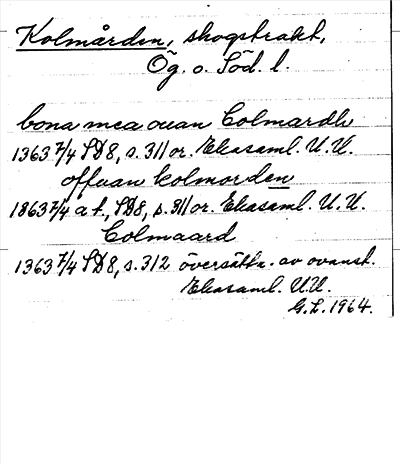 Kolmården, skogstrakt,
Ög. o. Söd. l.
bona mea ouan Colmardh
1363 7/4 SD8, s. 311 or. Ekasaml. U.U.
offuan kolmorden
1363 7/4 a t., SD8, s. 311 or. Ekasaml. U.U.
Colmaard
1363 7/4 SD8, s. 312 översättn. av ovanst.
Ekasaml. U.U.
G.L. 1964.